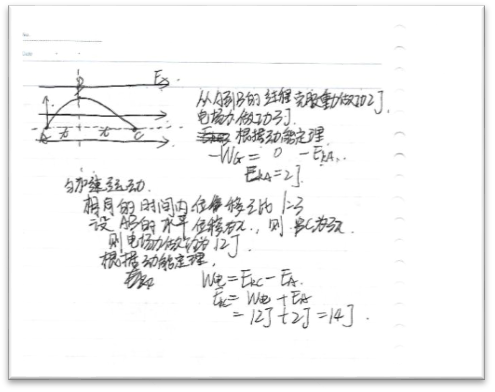 E
B
A x x C
从A到B的过程克服重力做功2J
电场力做功3J.
根据动能定理
-WG = 0 - EkA.
EkA=2J
匀加速运动.
相同的时间内位移之比 1:3
设AB的水平位移为x, 则BC为3x
则电场力做功为12J
根据动能定理,
W电=EkC-EA.
Ek=W电+EA
=12J+2J=14J.